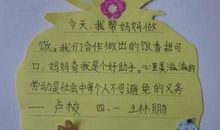 今天,我帮妈妈做
饭。我们合作做出的饭香甜可
口,妈妈夸我是个好助手。心里美滋滋的
劳动是社会中每个人不可避免的义务
——卢梭 四.一 王林鹏